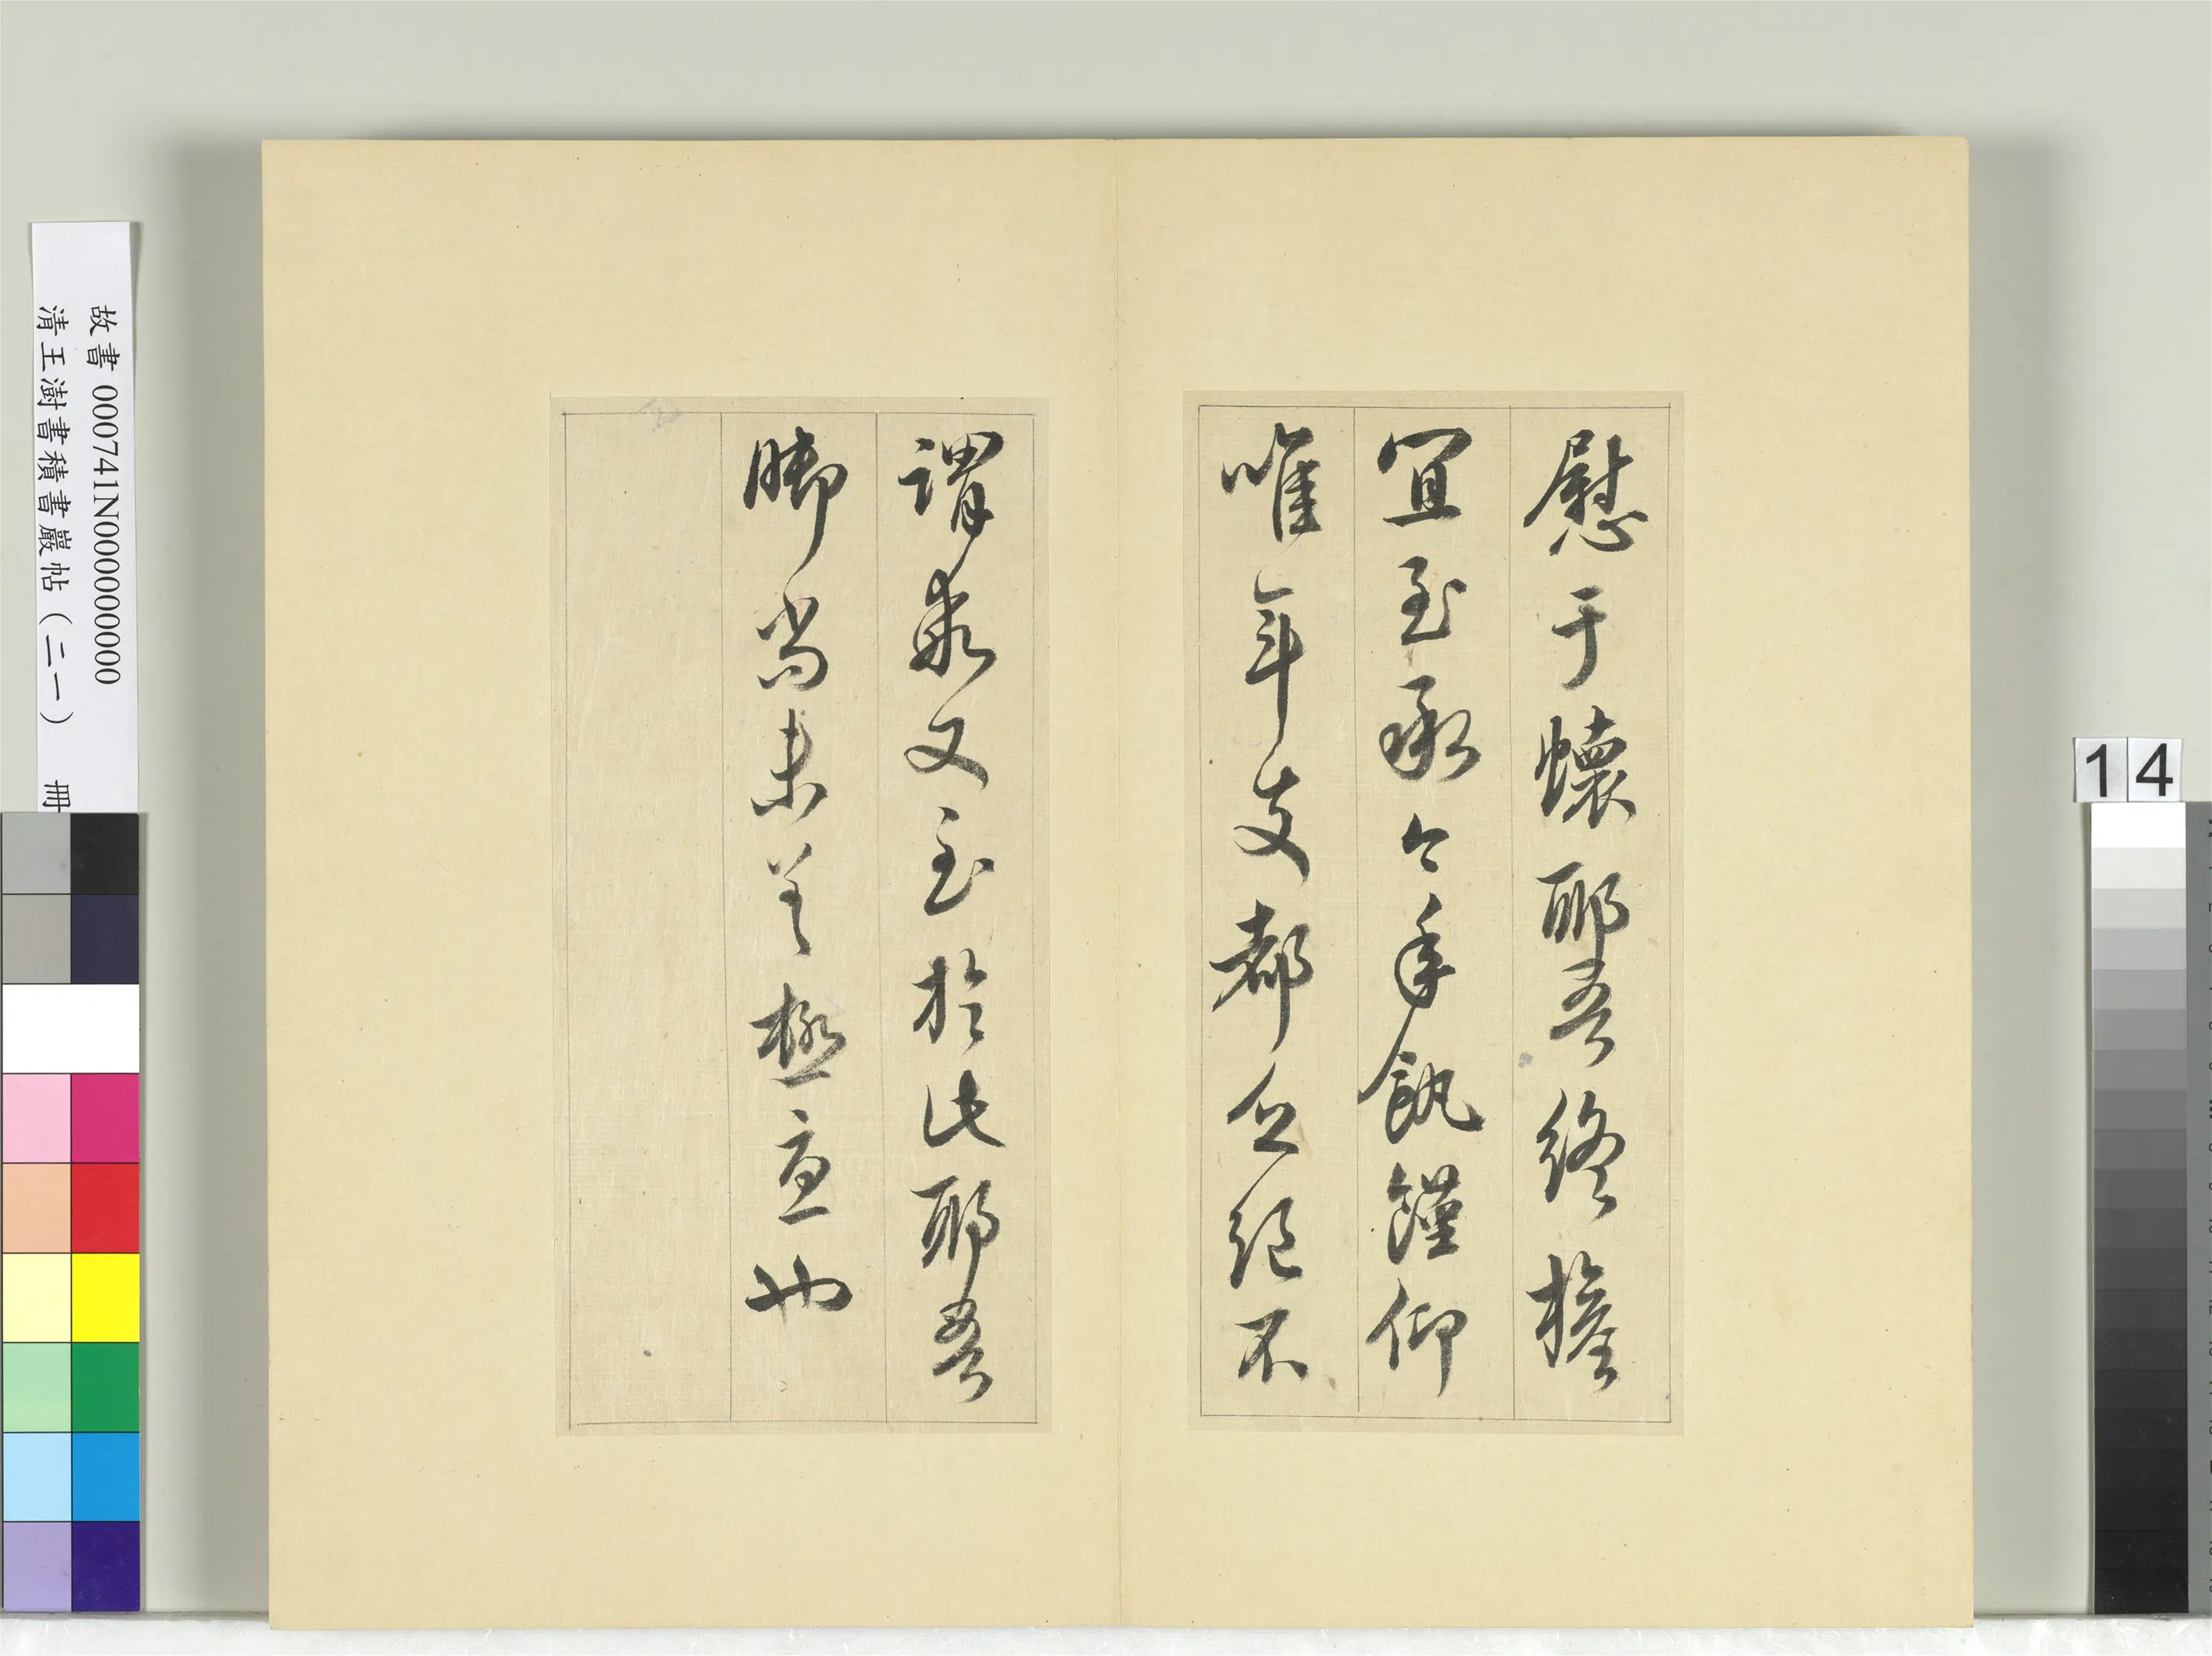 慰于懷耶吾終權
宜至承今年飢饉仰
唯年支都乏絕不
謂衆又至於此耶吾
腳尚未差極憂也
故書 000741N000000000
清王澍書積書巖帖（二一） 冊
14